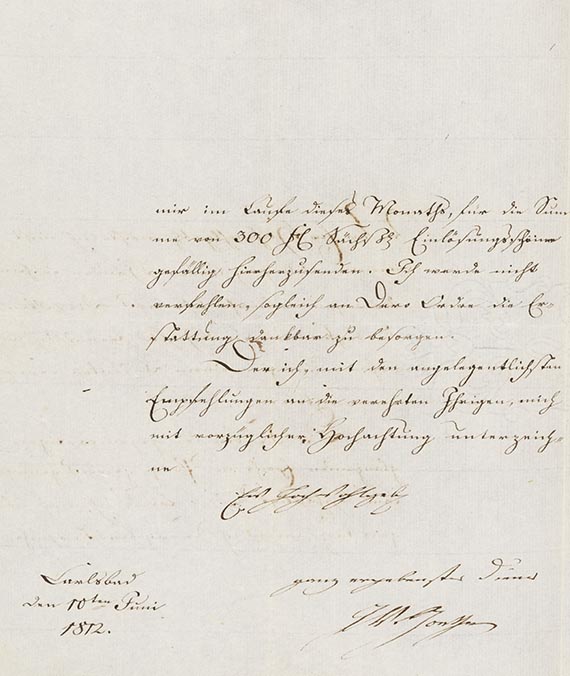 mir im Laufe dieses Monaths, für die Sum-
me von 300 fl. Sächs. Einlösungsscheine
gefällig hierherzusenden. Ich werde nicht
verfehlen, sogleich an Dero Ordre die Er-
stattung dankbar zu besorgen.
Der ich, mit den angelegentlichsten
Empfehlungen an die verehrten Ihrigen, mich
mit vorzüglicher Hochachtung unterzeich-
ne
Ew. Hochwohlgeb.
Carlsbad
den 10ten Juni
1812.
ganz ergebenster Diener
J W. Goethe